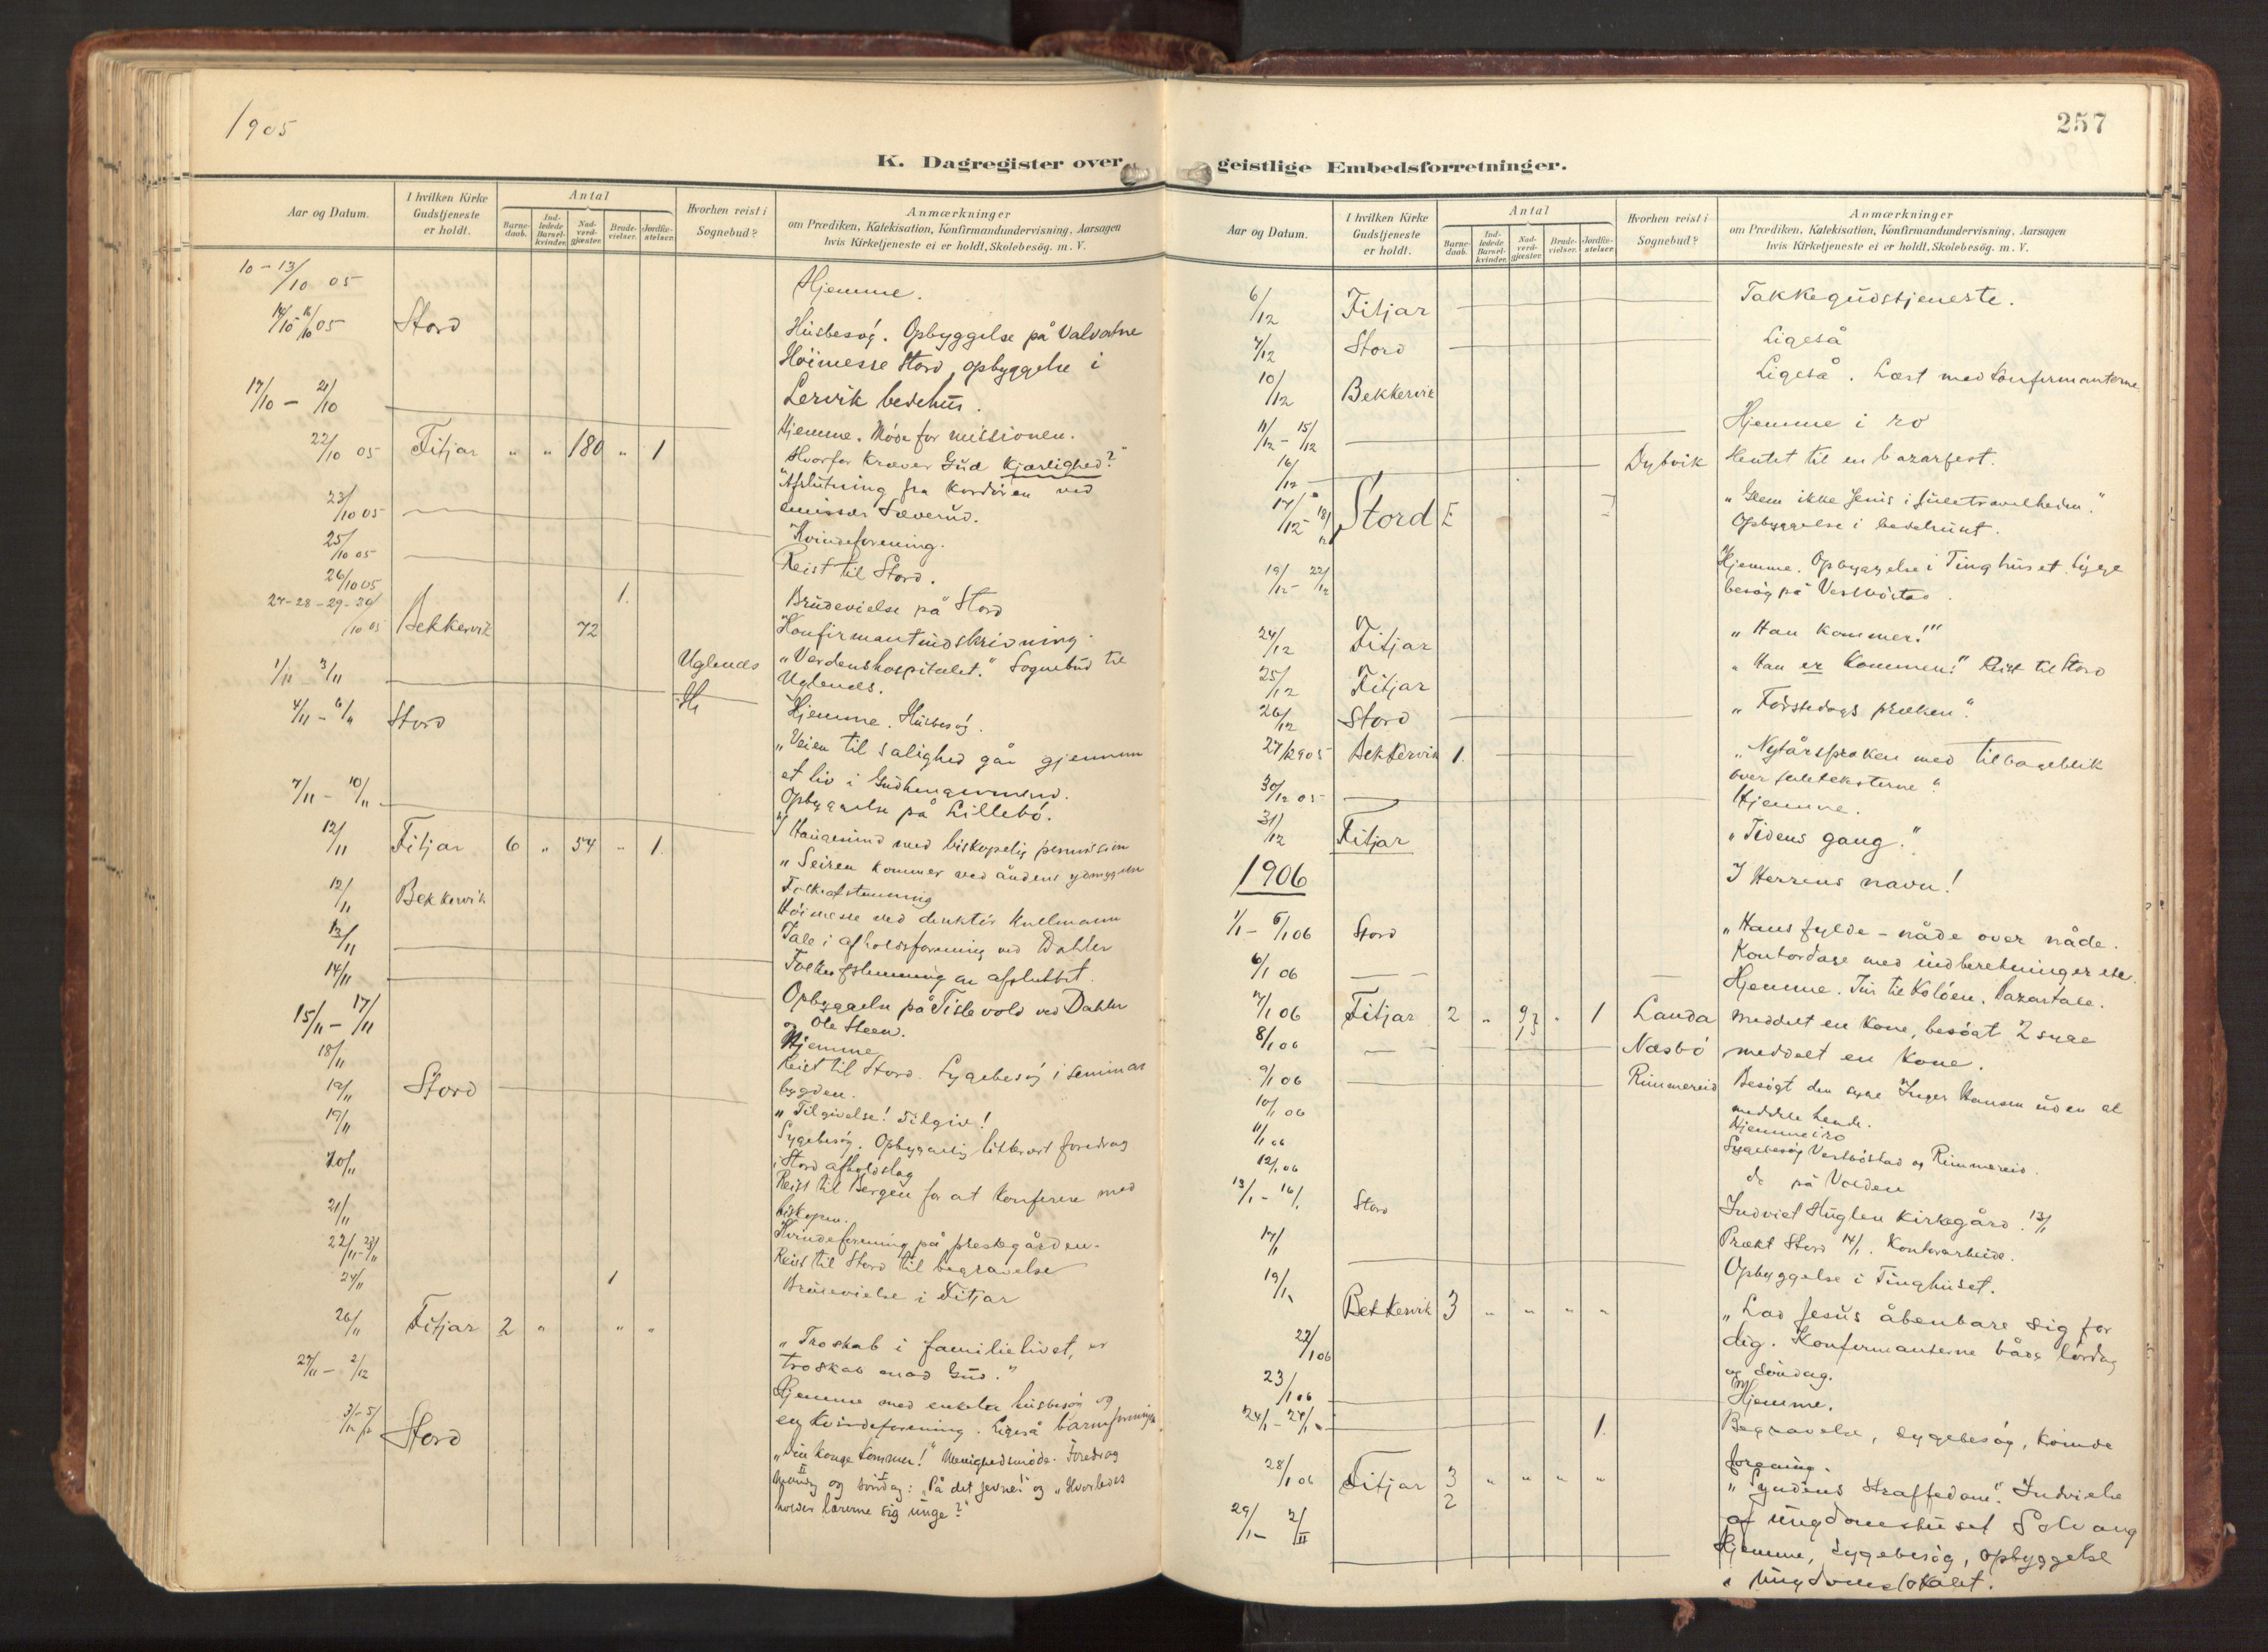 1905
K. Dagregister over
Aar og Datum.
I hvilken Kirke Gudstjeneste er holdt.
Antal
Barne-daab.
Ind-ledede Barsel-kvinder.
Nad-verd-gjæster.
Brude-vielser.
Jordfæ-stelser.
Hvorhen reist i Sognebud?
Anmærkninger
om Prædiken, Katekisation, Konfirmandundervisning, Aarsagen
hvis Kirketjeneste ei er holdt, Skolebesög. m. V.
10-13/10 05 Hjemme.
14/10 16/10 05 Stord Husbesøg. Opbyggelse på Valvatne
Höimesse Stord, opbyggelse i
Lervik bedehus.
17/10 - 21/10 Hjemme. Møde for missionen.
22/10 05 Fitjar " " 180 " 1 "Hvorfor kræver Gud kjærlighed?"
Afslutning fra kordören ved
emissær Sæverud.
23/10 05 Kvindeforening.
25/10 05 Reist til Stord.
26/10 05 1. Brudevielse på Stord
27-28-29-30/10 05 Bekkervik 72 Konfirmantindskrivning.
Uglenæs "Verdenshospitalet." Sognebud til
Uglenæs.
1/11 3/11 Hjemme. Husbesøg.
4/11 - 6/11 Stord "Veien til salighed går gjennem
et liv i Gudhengivenhed.
Opbyggelse på Lillebö.
7/11 - 10/11 I Haugesund med biskopelig permission
12/11 Fitjar 6 " 54 " 1 "Seiren kommer ved åndens
Folkeafstemning
12/11 Bekkervik Höimesse ved direktör Kullmann
Tale i afholdsforening ved Dahler
13/11
14/11 Folkeafstemning en afsluttet.
Opbyggelse på Tislevold ved Dahler
og Ole Steen.
15/11 - 17/11 Hjemme
18/11 Reist til Stord. Sygebesøg i seminar
bygden.
19/11 Stord "Tilgivelse! Tilgiv!
19/11 Sygebesøg. Opbyggelig litterært foredrag
i Stord afholdslag
20/11 Reist til Bergen for at konferere med
biskopen.
21/11 Kvindeforening på prestegården.
22/11-23/11 Reist til Stord til begravelse
24/11 1 Brudevielse i Fitjar
26/11 Fitjar 2 " " " "Troskab i familielivet, er
troskab mod Gud."
27/11 - 2/12 Hjemme med enkelte husbesøg og
en kvindeforening. Ligeså barneforening
3/12-5/12 Stord "Din konge kommer!" Menighedsmöde. Foredrag
mandag og söndag: "På det jevne!" og "Hvorledes
holder lærerne sig unge?"
257
geistlige Embedsforretninger.
Aar og Datum.
I hvilken Kirke Gudstjeneste er holdt.
Antal
Barne-daab.
Ind-ledede Barsel-kvinder.
Nad-verd-gjæster.
Brude-vielser.
Jordfæ-stelser.
Hvorhen reist i Sognebud?
Anmærkninger
om Prædiken, Katekisation, Konfirmandundervisning, Aarsagen
hvis Kirketjeneste ei er holdt, Skolebesög. m. V.
6/12 Fitjar Takkegudstjeneste.
7/12 Stord Ligeså
10/12 Bekkervik Ligeså. Læst med konfirmanterne
11/12 - 15/12 Hjemme i ro
16/12 Dybvik Hentet til en bazarfest.
17/12 - 18/12 Stord "Glem ikke Jesus i juletravelheden."
Opbyggelse i bedehuset.
19/12 - 22/12 Hjemme. Opbyggelse i Tinghuset. Syge
besøg på Vestböstad.
24/12 Fitjar "Han kommer!"
25/12 Fitjar "Han er kommen!" Reist til Stord
26/12 Stord "Förstedags præken."
27/12 905 Bekkervik 1. "Nytårspræken med tilbageblik
over juleteksterne."
30/12 05 Hjemme.
31/12 Fitjar "Tidens gang."
1906 I Herrens navn!
1/1 - 5/1 06 Stord "Hans fylde - nåde over nåde.
Kontordage med indberetninger etc.
6/1 06 Hjemme. Tur til Kolöen. Bazartale.
7/1 06 Fitjar 2 " 92 " 1 Landa Meddelt en kone, besögt 2 syge
8/1 06 Næsbö meddelt en kone.
9/1 06 Rimmereid Besögt den syge Inger Hansen uden at
meddele hende.
10/1 06 Hjemme i ro
11/1 06 Sygebesøg Vestböstad og Rimmereid.
12/1 06 do på Volden
13/1 - 16/1 Stord Indviet Huglen kirkegård. 13/1
Prækt Stord 14/1. Kontorarbeide.
17/1 Opbyggelse i Tinghuset.
19/1 Bekkervik 3 " " " " "Lad Jesus åbenbare sig for
dig. Konfirmanterne både lördag
og söndag.
22/1 06
23/1 06 Hjemme.
24/1 - 27/1 1. Begravelse, sygebesøg, kvinde
forening.
28/1 06 Fitjar 3 " " " " "Syndens straffedom." Indvielse
2 af ungdomshuset Solvang
29/1 - 2/II Hjemme, sygebesøg, opbyggelse
i ungdomslokalet.